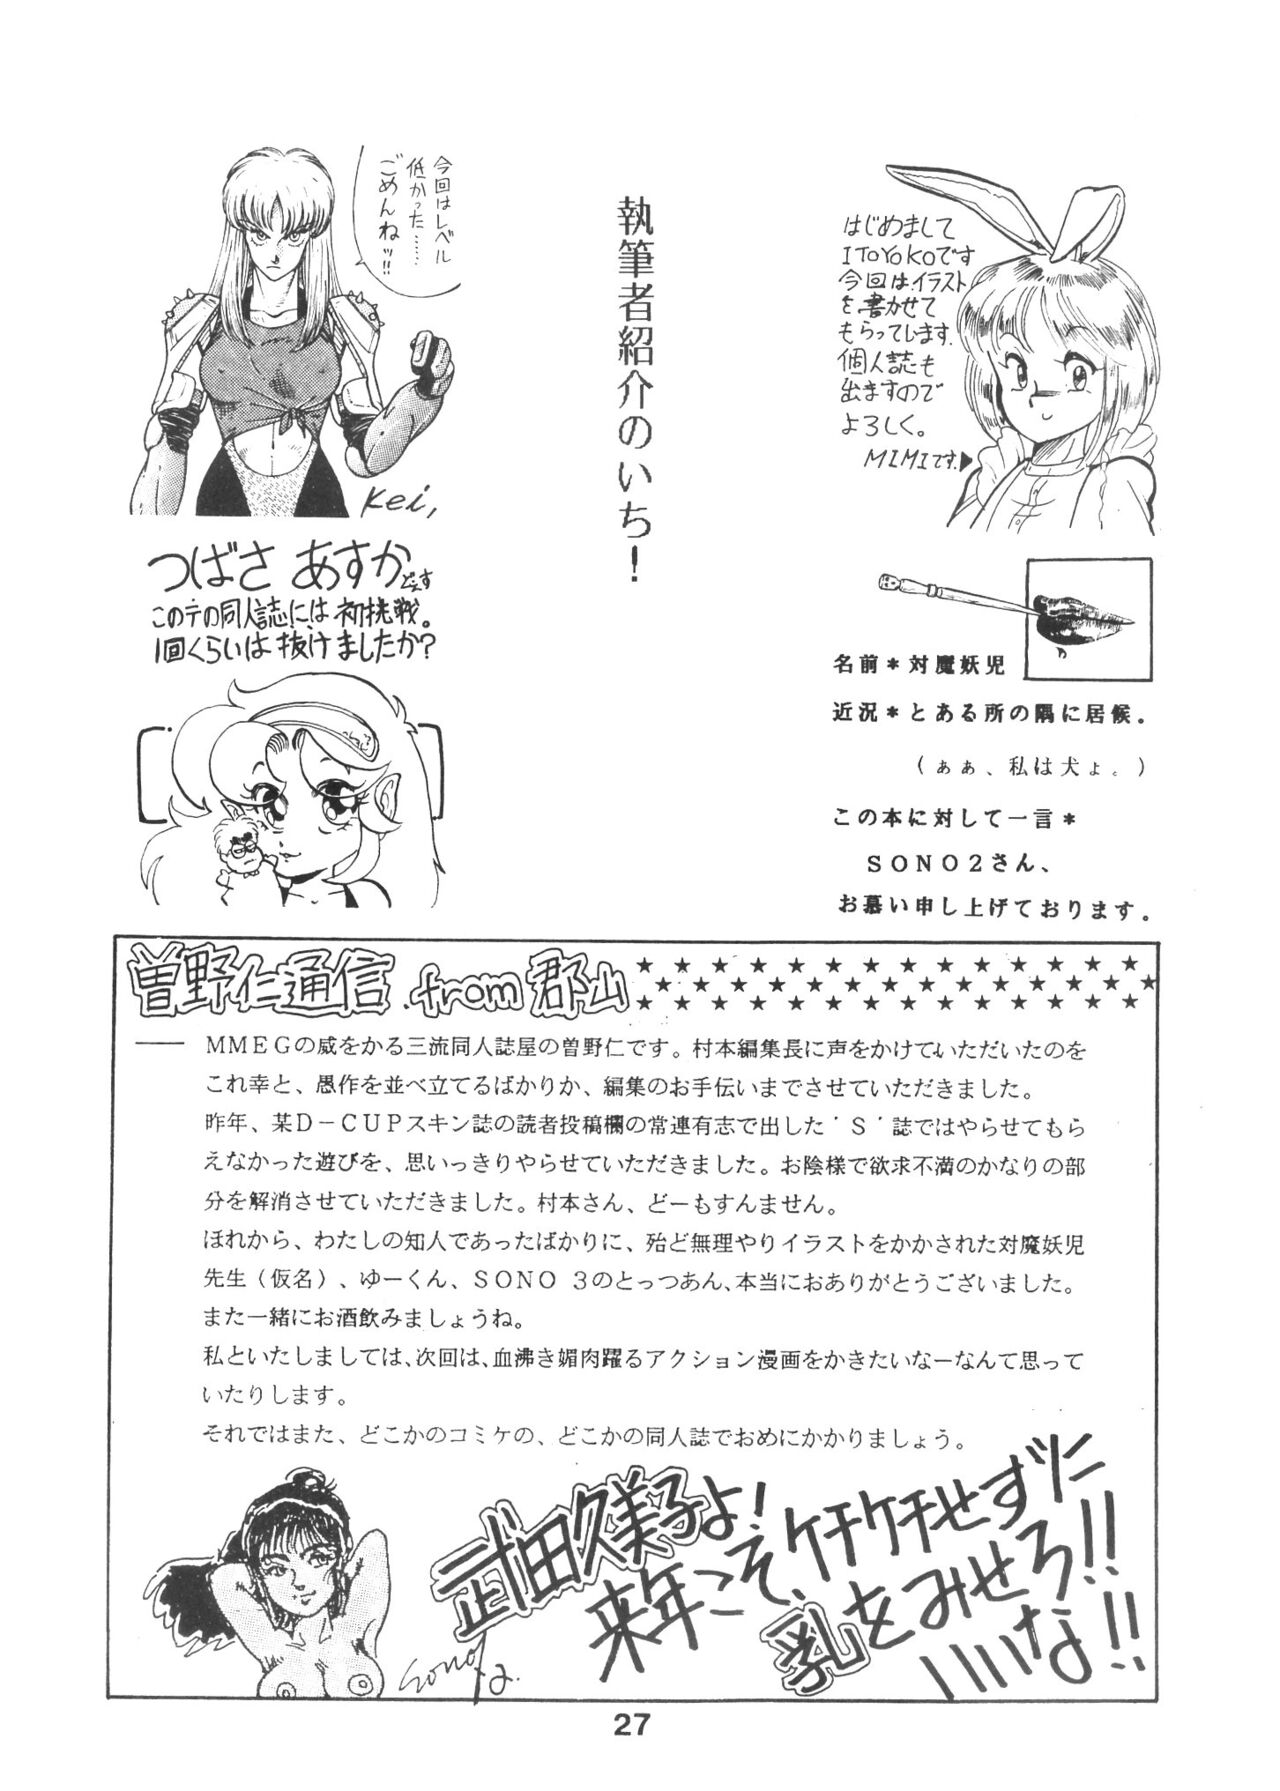 執筆者紹介のいち！
はじめまして
ITOYOKOです
今回はイラスト
を書かせて
もらってします.
個人誌も
出ますので
よろしく。
MIMIです.▶
今回はレベル
低かった……
ごめんねッ!!
Kei,
つばさ あすか どぇす
このテの同人誌には初挑戦。
1回くらいは抜けましたか?
名前＊対魔妖児
近況＊とある所の隅に居候．
（ぁぁ、私は犬ょ。）
この本に対して一言＊
ＳＯＮＯ２さん、
お慕い申し上げております．
曽野仁通信.from郡山
ＭＭＥＧの威をかる三流同人誌屋の曽野仁です。村本編集長に声をかけていただいたのを
これ幸と、愚作を並べ立てるばかりか、編集のお手伝いまでさせていただきました。
昨年、某Ｄ－ＣＵＰスキン誌の読者投稿欄の常連有志で出した＇Ｓ＇誌ではやらせてもら
えなかった遊びを、思いっきりやらせていただきました。お陰様で欲求不満のかなりの部
分を解消させていただきました。村本さん、どーもすんません。
ほれから、わたしの知人であったばかりに、殆ど無理やりイラストをかかされた対魔妖児
先生（仮名）、ゆーくん、ＳＯＮＯ ３のとっつあん、本当におありがとうございました。
また一緒にお酒飲みましょうね。
私といたしましては、次回は、血沸き媚肉躍るアクション漫画をかきたいなーなんて思って
いたりします。
それではまた、どこかのコミケの、どこかの同人誌でおめにかかりましょう。
武田久美子よ!
来年こそ、ケチケチせずに
乳をみせろ!!
いいな!!
Sono2.
27